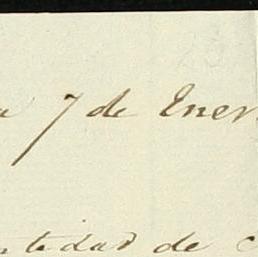 7 de Ener
ntidad de